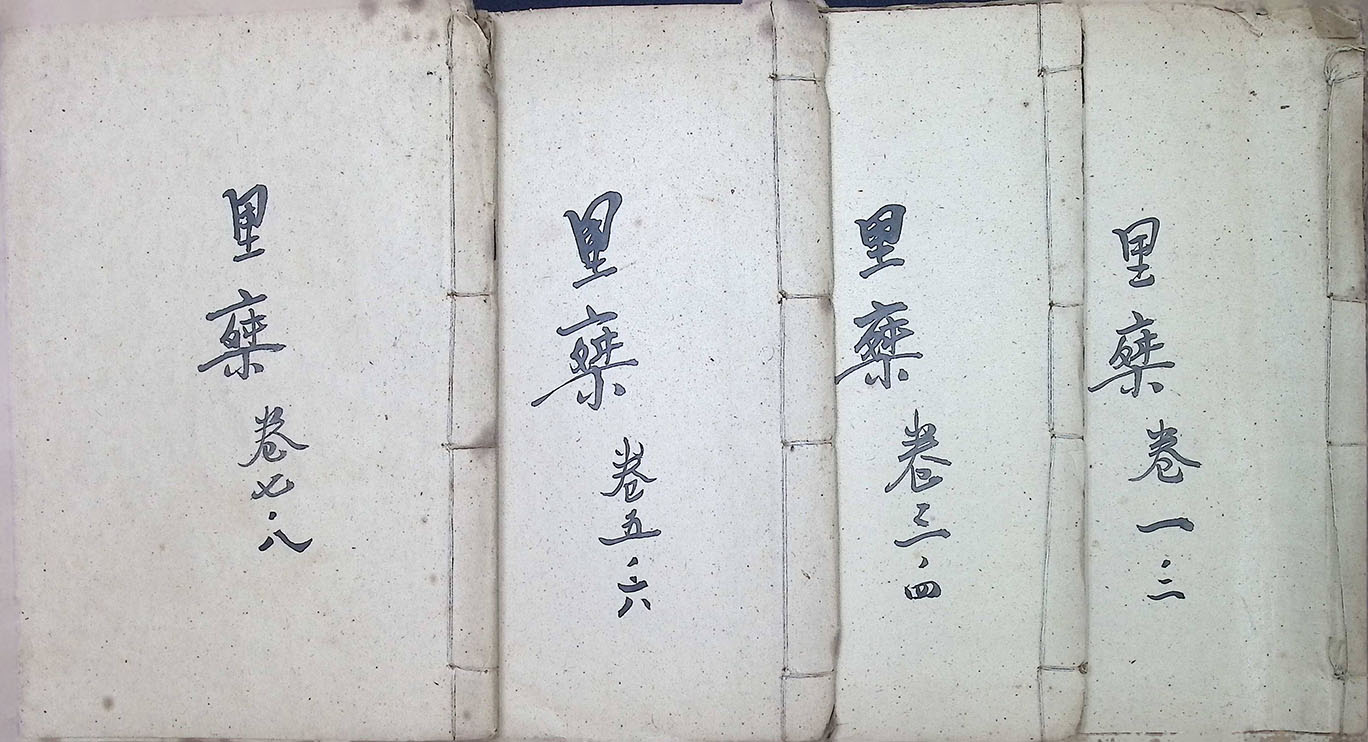 里椉 卷一·二
里椉 卷三·四
里椉 卷五·六
里椉 卷七·八